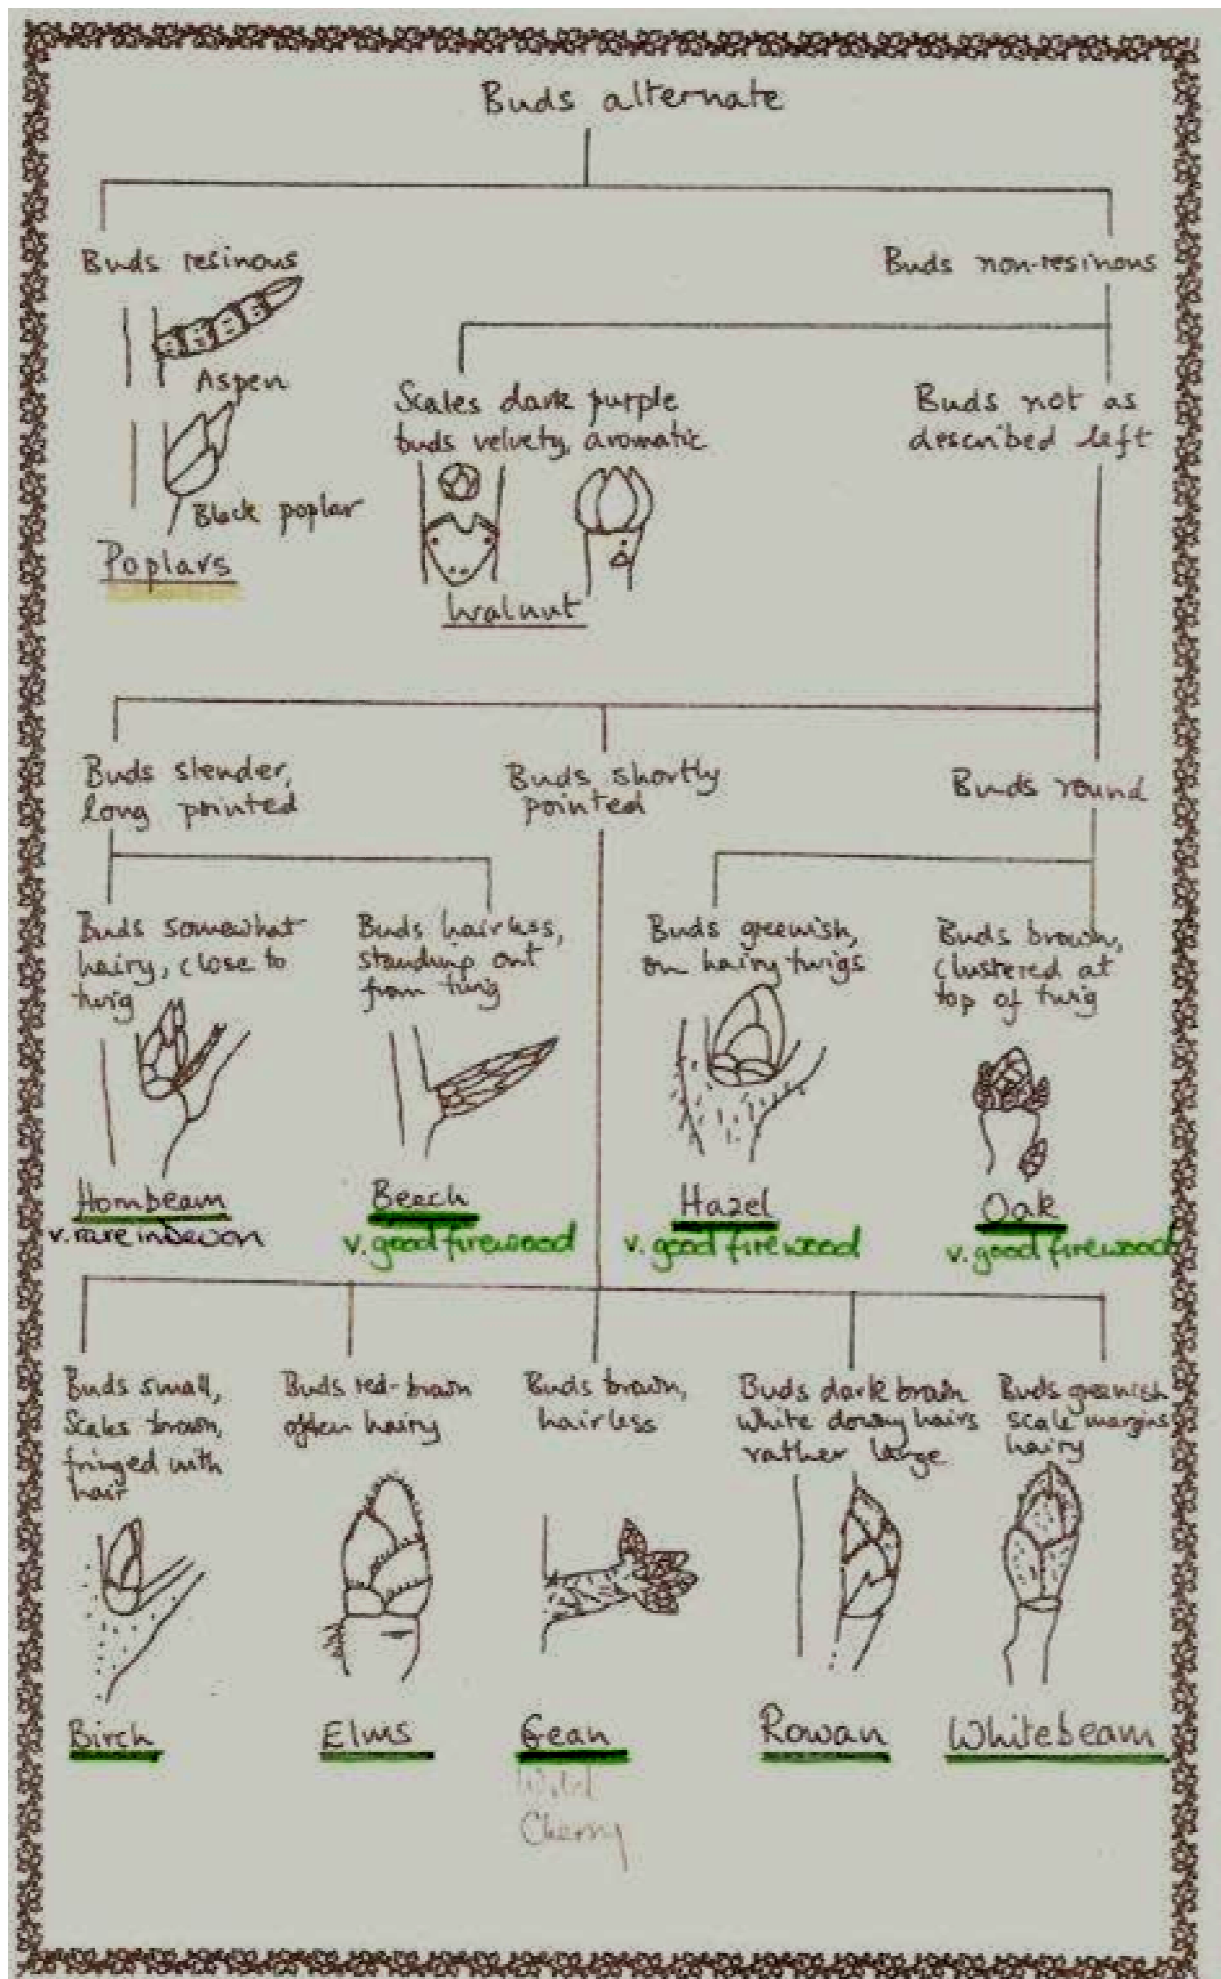 Buds alternate
Buds resinous
Buds non-resinous
Aspen
Black poplar
Poplars
Scales dark purple
buds velvety, aromatic
Walnut
Buds not as
described left
Buds slender,
long pointed
Buds shortly
pointed
Buds round
Buds somewhat
hairy, close to
twig
Hornbeam
v. rare in Devon
Buds hairless,
standing out
from twig
Beech
v. good firewood
Buds greenish,
on hairy twigs
Hazel
v. good firewood
Buds brown,
clustered at
top of twig
Oak
v. good firewood
Buds small,
Scales brown,
fringed with
hair
Birch
Buds red-brown
often hairy
Elms
Buds brown,
hairless
Gean
Wild
Cherry
Buds dark brown
white downy hairs
rather large
Rowan
Buds greenish
scale margins
hairy
Whitebeam